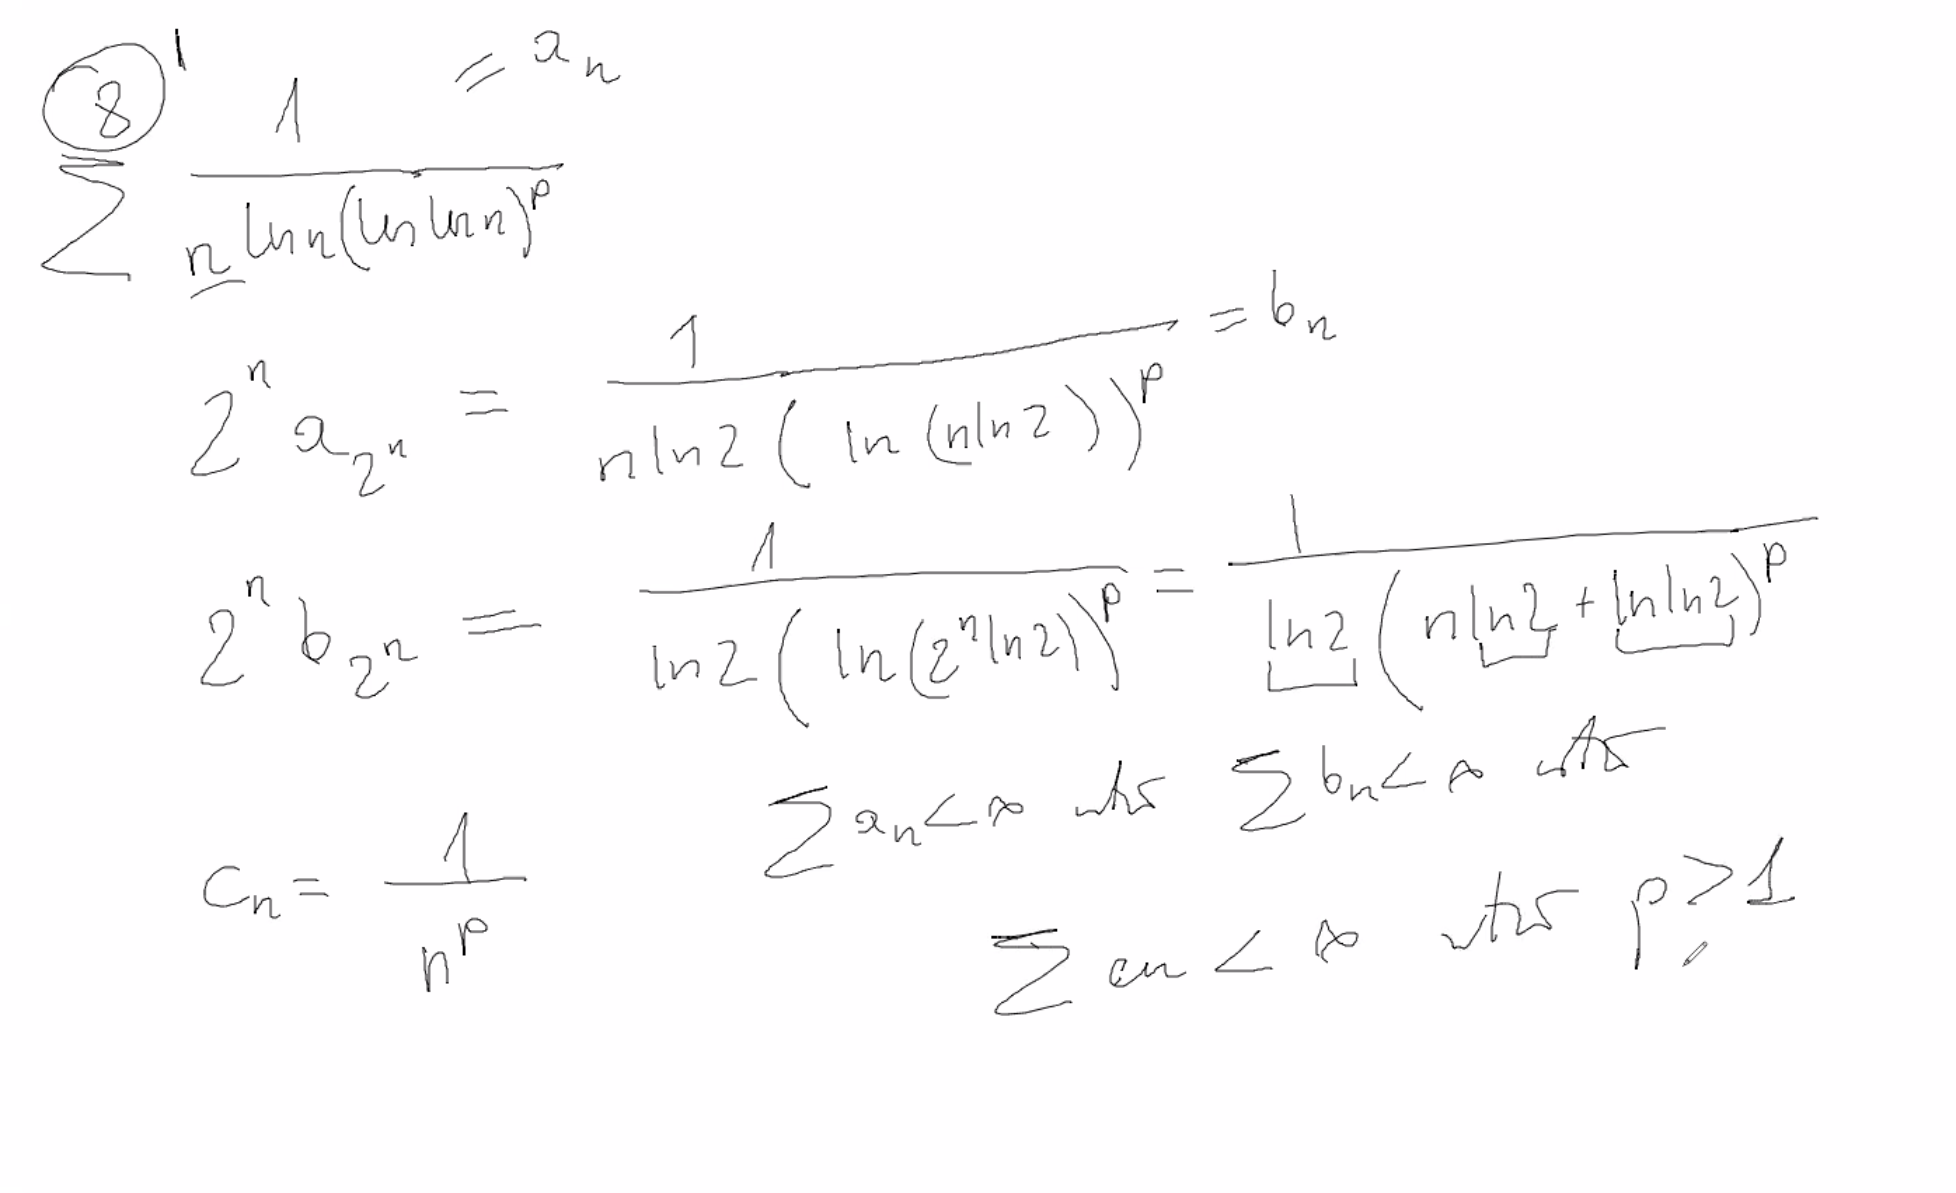 8
∑ 1 / (n ln n (ln ln n)^p) = a_n
2^n a_{2^n} = 1 / (n ln 2 (ln (n ln 2))^p) = b_n
2^n b_{2^n} = 1 / (ln 2 (ln (2^n ln 2))^p) = 1 / (ln 2 (n ln 2 + ln ln 2)^p)
∑ a_n < ∞ wtw ∑ b_n < ∞ wtw
c_n = 1 / n^p
∑ c_n < ∞ wtw p > 1